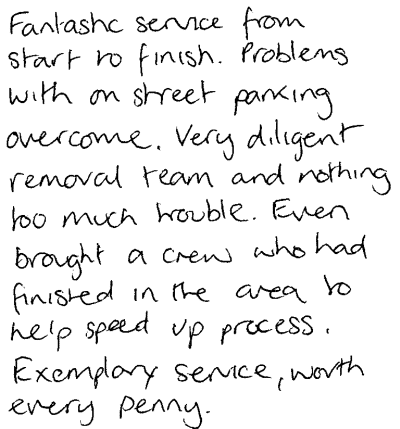 Fantastic service from
start to finish. Problems
with on street parking
overcome. Very diligent
removal team and nothing
too much trouble. Even
brought a crew who had
finished in the area to
help speed up process.
Exemplary service, worth
every penny.